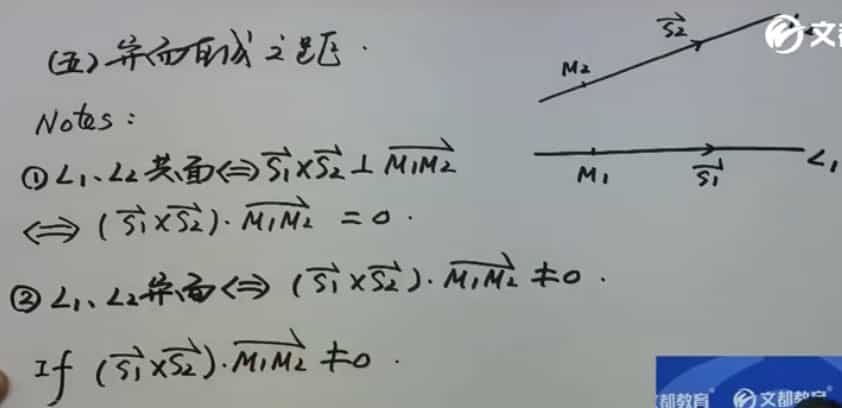 (五) 异面直线之距.
Notes:
① L₁、L₂ 共面 ⟺ \vec{S₁}×\vec{S₂} ⊥ \overrightarrow{M₁M₂}
⟺ (\vec{S₁}×\vec{S₂})·\overrightarrow{M₁M₂} = 0.
② L₁、L₂ 异面 ⟺ (\vec{S₁}×\vec{S₂})·\overrightarrow{M₁M₂} ≠ 0.
If (\vec{S₁}×\vec{S₂})·\overrightarrow{M₁M₂} ≠ 0.
\vec{S₂}
M₂
M₁
\vec{S₁}
L₁
文都
都教育
文都教育